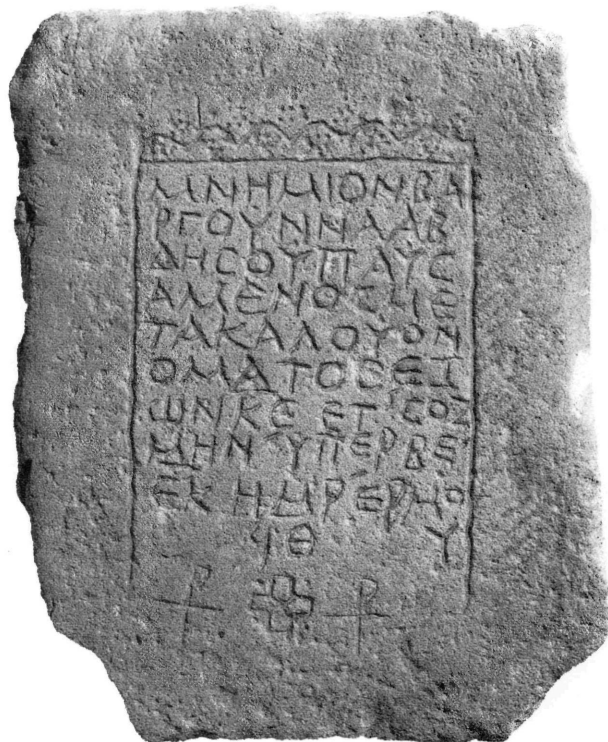 ΜΝΗΜΙΟΝΒΑ
ΡΓΟΥΝΝΑΑΒ
ΔΗCΟΥΠΑΥC
ΑΜΕΝΟCΜΕ
ΤΑΚΑΛΟΥΟΝ
ΟΜΑΤΟCΕΤ
ΩΝΚΕ ΕΤ
ΜΗΝ ΥΠΕΡΒΕ
ΕΚ ΗΜΡ ΕΡΜΟ
ΙΘ Υ